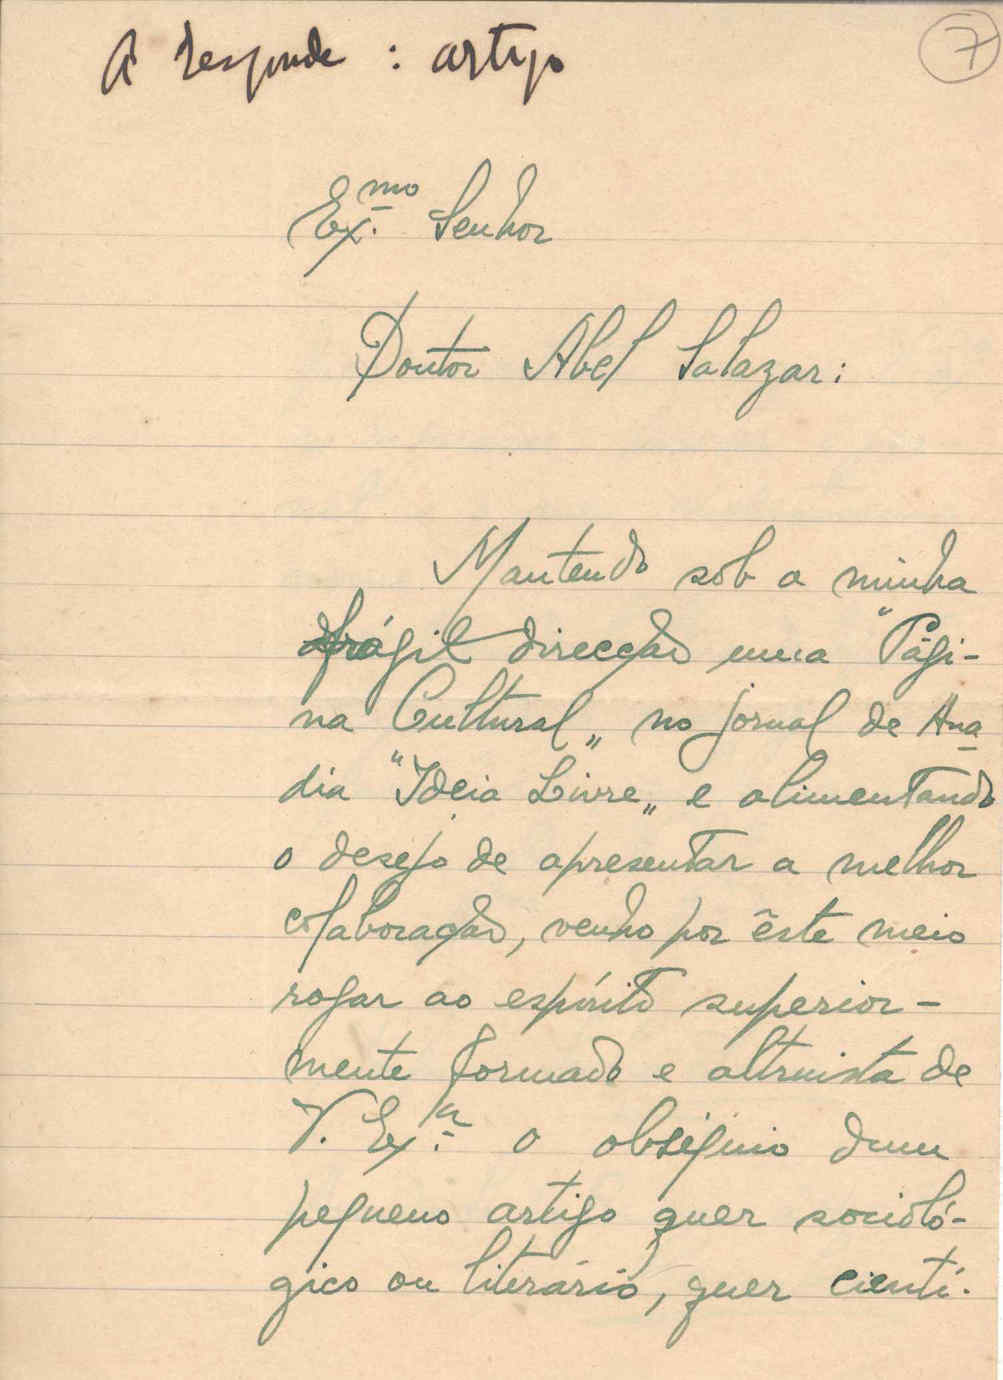 A responde : artigo
7
Ex.mo Senhor
Doutor Abel Salazar:
Mantendo sob a minha
frágil direcção uma "Pági-
na Cultural„ no jornal de Ana
dia "Ideia Livre„ e alimentando
o desejo de apresentar a melhor
colaboração, venho por êste meio
rogar ao espírito superior-
mente formado e altruista de
V. Ex.a o obséquio dum
pequeno artigo quer socioló-
gico ou literário, quer cientí-